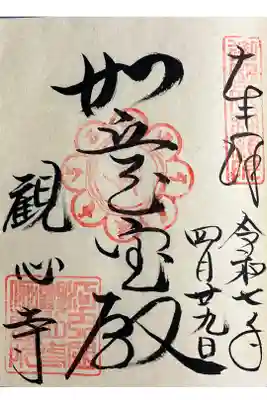 奉拝
令和七年
四月廿九日
如意宝殿
観心寺